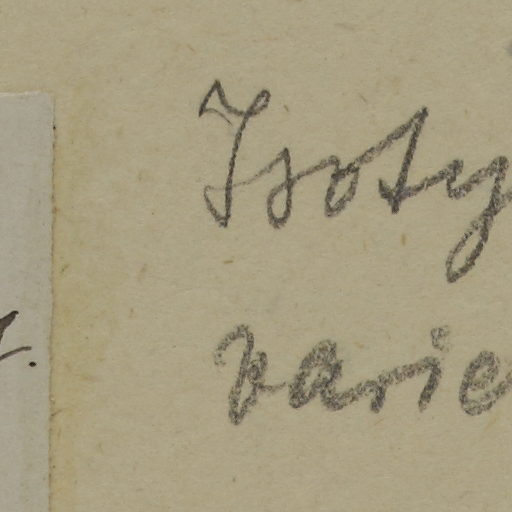 Isoty
varie